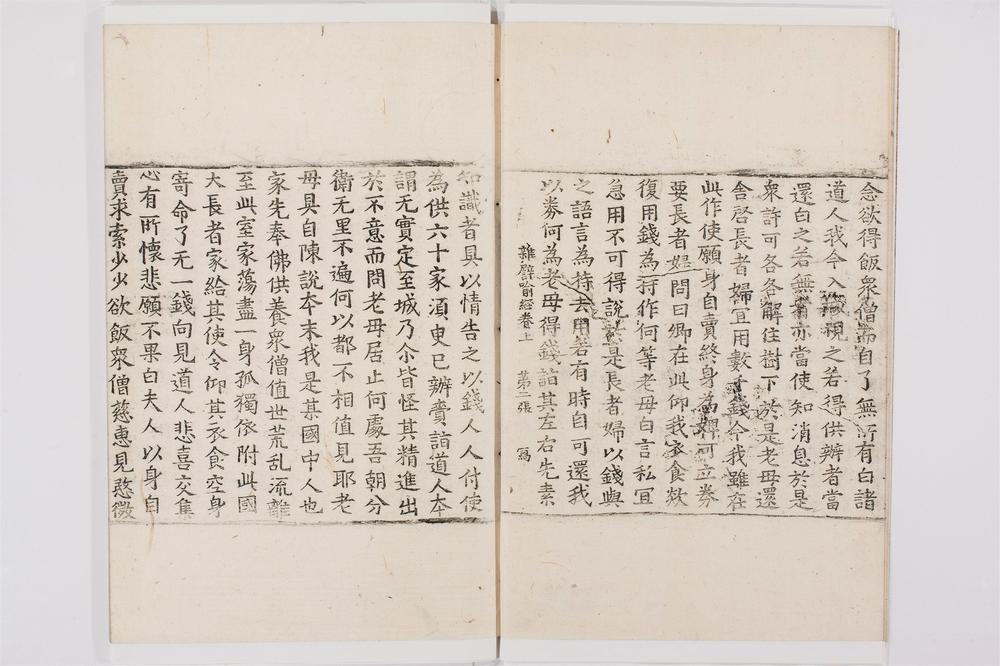 念欲得飯衆僧而自了無所有白諸
道人我今入城視之若得供辦者當
還白之若無者亦當使知消息於是
衆許可各各解住樹下於是老母還
舍啓長者婦宜用數千錢今我雖在
此作使願身自賣終身為婢可立券
要長者婦問曰卿在此仰我衣食欻
復用錢為持作何等老母白言私宜
急用不可得說於是長者婦以錢與
之語言為持去用若有時自可還我
以券何為老母得錢詣其左右先素
雜譬喻經卷上 第二張 寫
知識者具以情告之以錢人人付使
為供六十家須臾已辦賷詣道人本
謂无實定至城乃尒皆怪其精進出
於不意而問老母居止何處吾朝分
衛无里不遍何以都不相值見耶老
母具自陳說本末我是某國中人也
家先奉佛供養衆僧值世荒乱流離
至此室家蕩盡一身孤獨依附此國
大長者家給其使令仰其衣食空身
寄命了无一錢向見道人悲喜交集
心有所懷悲願不果白夫人以身自
賣求索少少欲飯衆僧慈惠見愍微